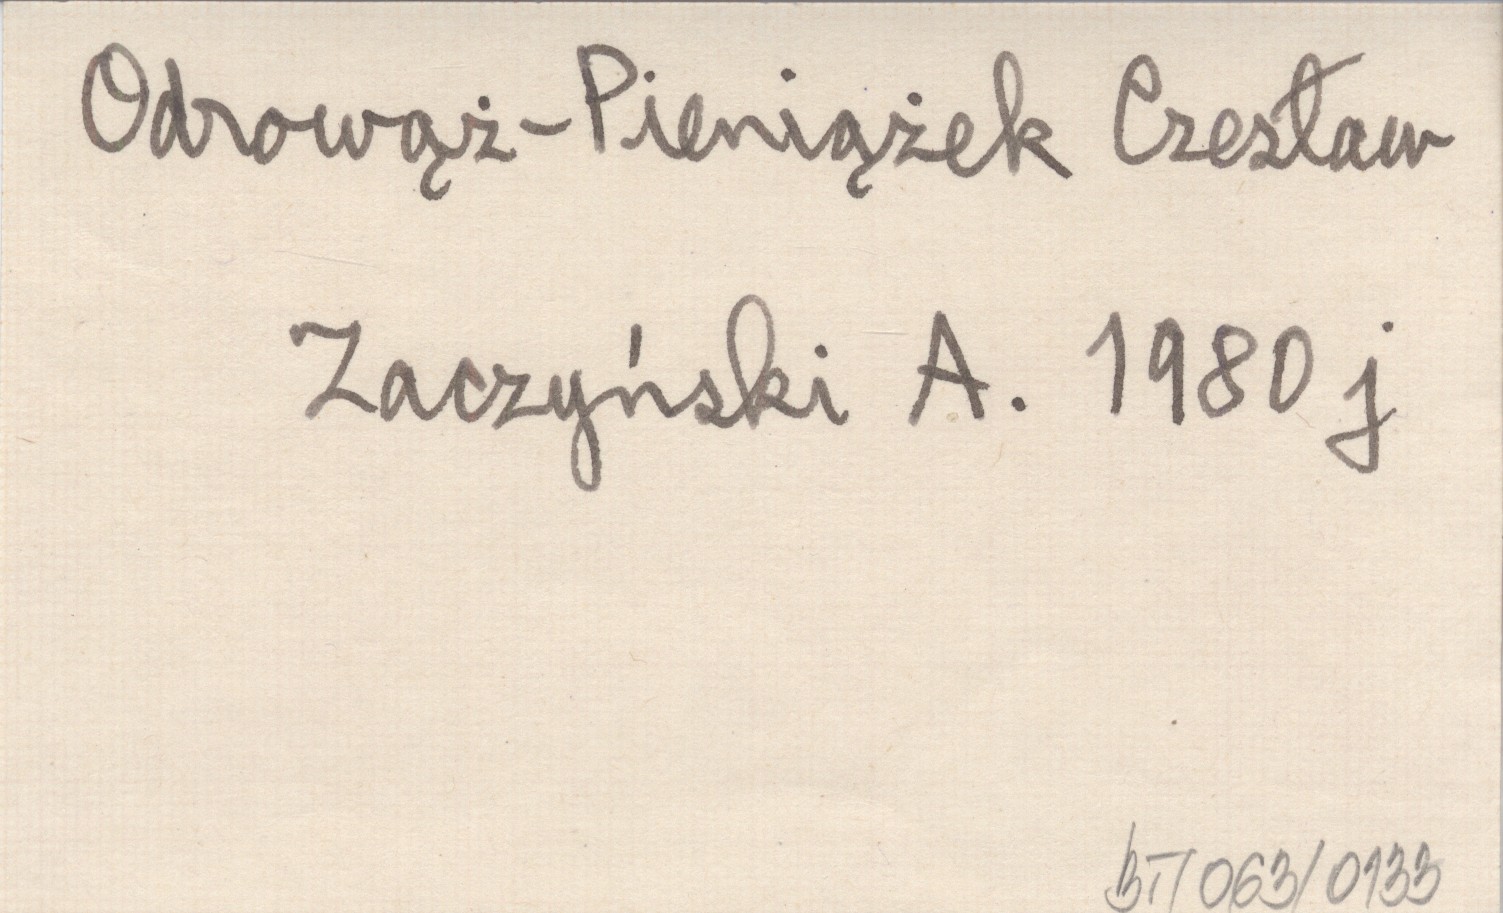 Odrowąż-Pieniążek Czesław
Zaczyński A. 1980 j
BT/063/0133